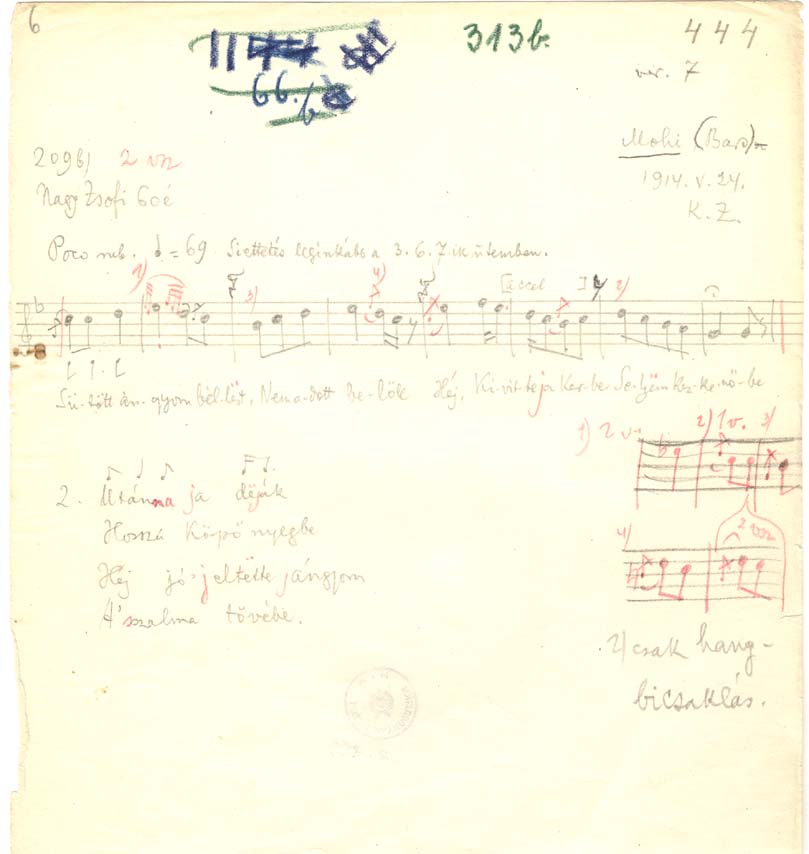 6
313b.
444
66. b
var. 7
209b) 2 vsz
Mohi (Bars)
Nagy Zsofi 60é
1914. V. 24.
K. Z.
Poco rub. = 69 Siettetés leginkább a 3. 6. 7 ik ütemben.
1) 3) 4) [accel ] 2)
Sü-tött án-gyom bél-lést, Nem a-dott be-lőle Héj, Ki-vit-te ja Ker-be Se-ljëm kez-ke-nő-be
1) 2 v. 2) 1 v. 3)
2. Utánna ja déják
Hosszú köpönyegbe
4) 2 vsz
Héj jó jeltëtte jángyom
A' szalma tövébe.
2) csak hang-
bicsaklás.